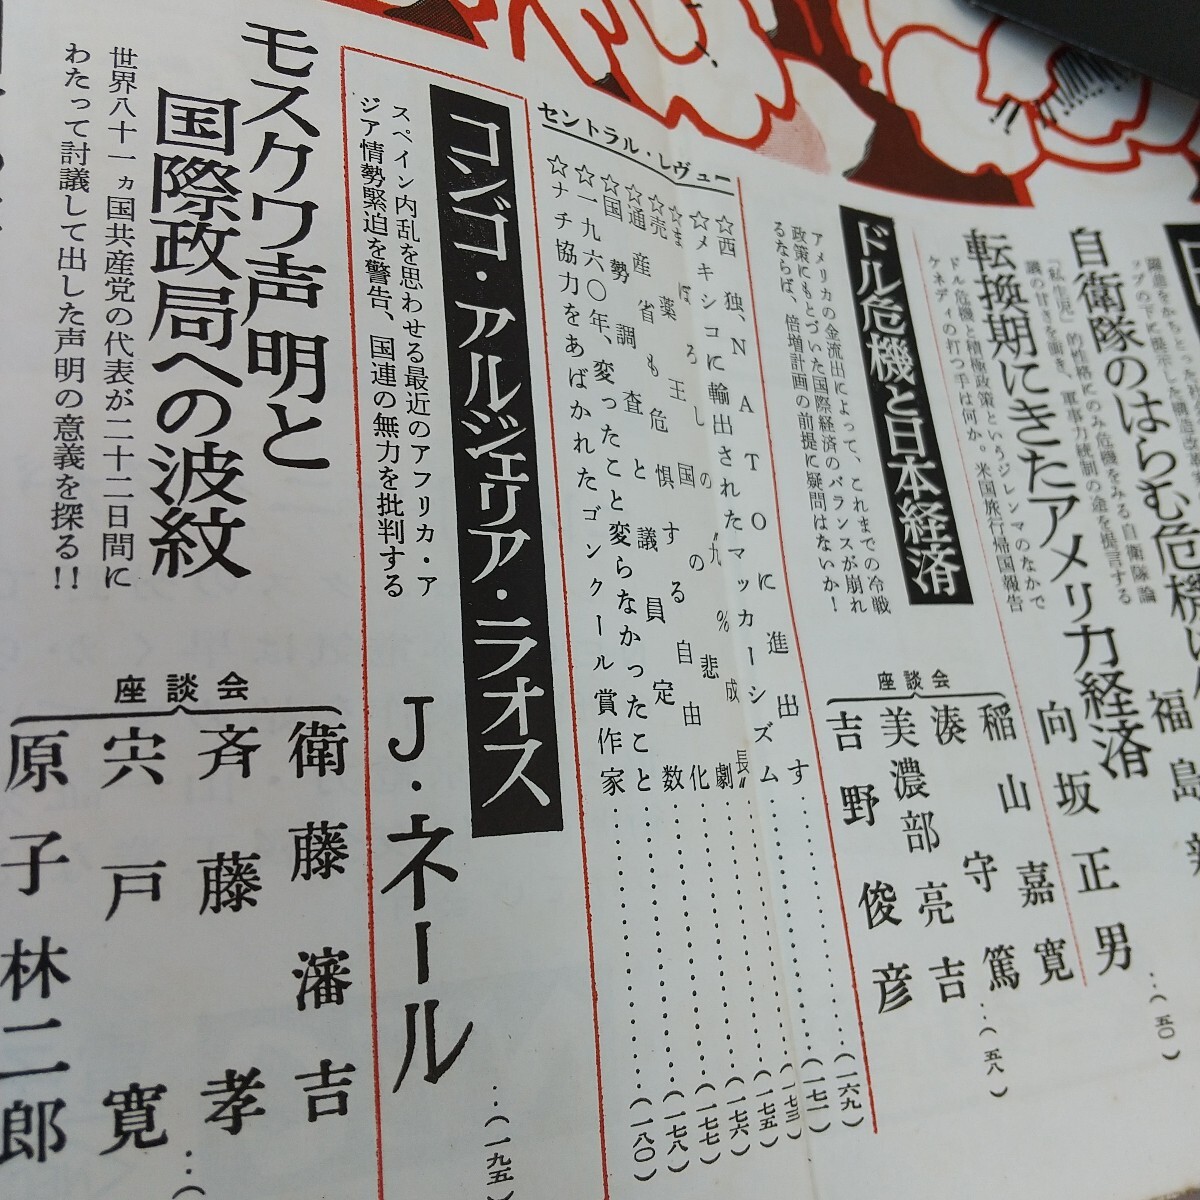 自衛隊のはらむ危機
闘
「私生児」的性格にのみ危機をみる自衛隊論
議の甘さを衝き、軍事力統制の途を提言する
福島新
転換期にきたアメリカ経済
ドル危機と積極政策というジレンマのなかで
ケネディの打つ手は何か。米国旅行帰国報告
向坂正男
…(五〇)
ドル危機と日本経済
アメリカの金流出によって、これまでの冷戦
政策にもとづいた国際経済のバランスが崩れ
るならば、倍増計画の前提に疑問はないか!
座談会
稲山嘉寛
湊守篤
美濃部亮吉
吉野俊彦
…(五八)
セントラル・レヴュー
☆西独、NATOに進出す……(一六九)
☆メキシコに輸出されたマッカーシズム……(一七一)
☆まぼろしの“九%成長”……(一七三)
☆売薬王国の悲劇……(一七五)
☆通産省も危惧する自由化……(一七六)
☆国勢調査と議員定数……(一七七)
☆一九六〇年、変ったこと変らなかったこと……(一七八)
☆ナチ協力をあばかれたゴンクール賞作家……(一八〇)
コンゴ・アルジェリア・ラオス
スペイン内乱を思わせる最近のアフリカ・ア
ジア情勢緊迫を警告、国連の無力を批判する
J・ネール
…(一九五)
モスクワ声明と
国際政局への波紋
世界八十一ヵ国共産党の代表が二十二日間に
わたって討議して出した声明の意義を探る!!
座談会
衛藤瀋吉
斉藤孝
宍戸寛
原子林二郎